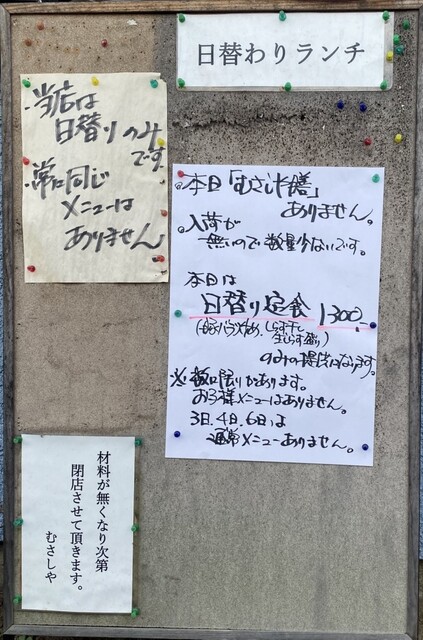 日替わりランチ
・当店は
日替りのみ
です
・常に同じ
メニューは
ありません
・本日「むさし半膳」
ありません。
・入荷が
無いので数量少ないです。
本日は
日替り定食 1300.-
しらす干し
生しらす盛り)
のみの提供になります。
※数に限りがあります。
お子様メニューはありません。
3日、4日、6日は
通常メニューありません。
材料が無くなり次第
閉店させて頂きます。
むさしや